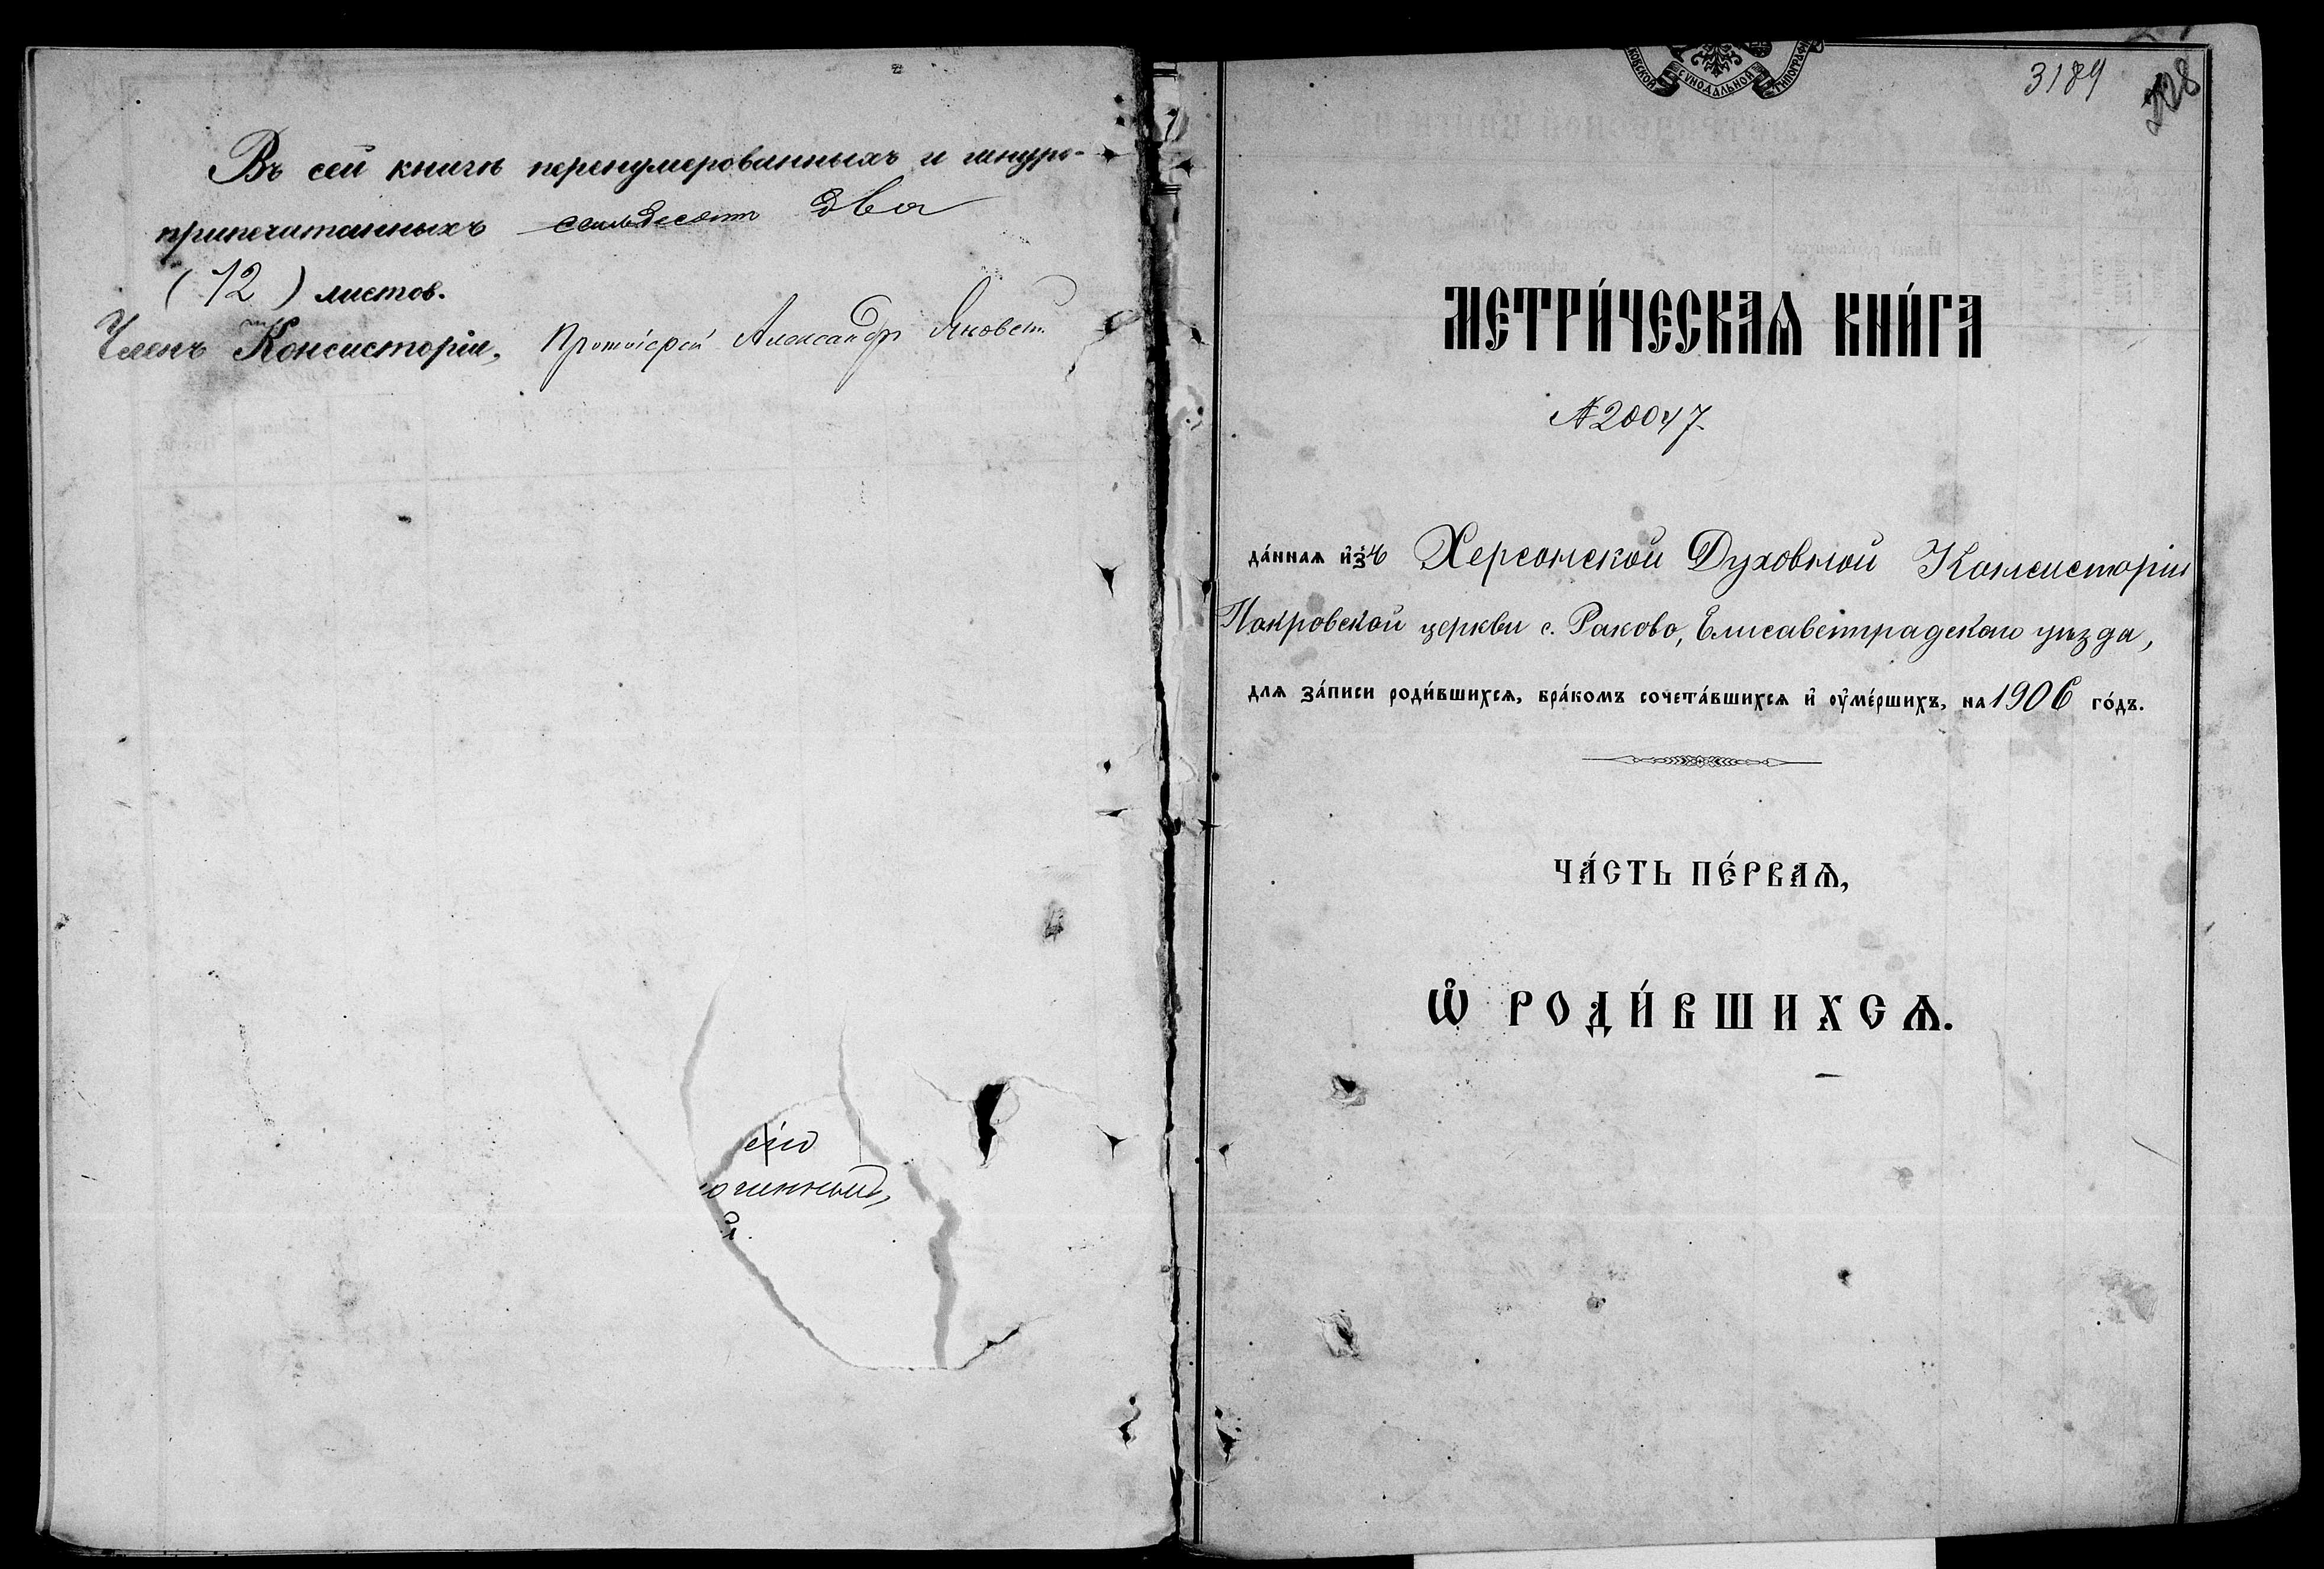 Въ сей книгѣ перенумерованныхъ и шнуро-
припечатанныхъ семьдесятъ два
(72) листов.
Членъ Консисторіи, Протоіерей Александръ
сію
д.
СѴНОДАЛЬНОЙ
3189
МЕТРИ́ЧЕСКАѦ КНИ́ГА
№ 20047.
да́ннаѧ и҆зъ Херсонской Духовной Консисторіи
Покровской церкви с. Раково, Елисаветградскаго уѣзда,
длѧ за́писи роди́вшихсѧ, бра́комъ сочета́вшихсѧ и҆ ѹ҆ме́ршихъ, на 1906 го́дъ.
ЧА́СТЬ ПЕ́РВАѦ,
Ѡ҆ РОДИ́ВШИХСѦ.